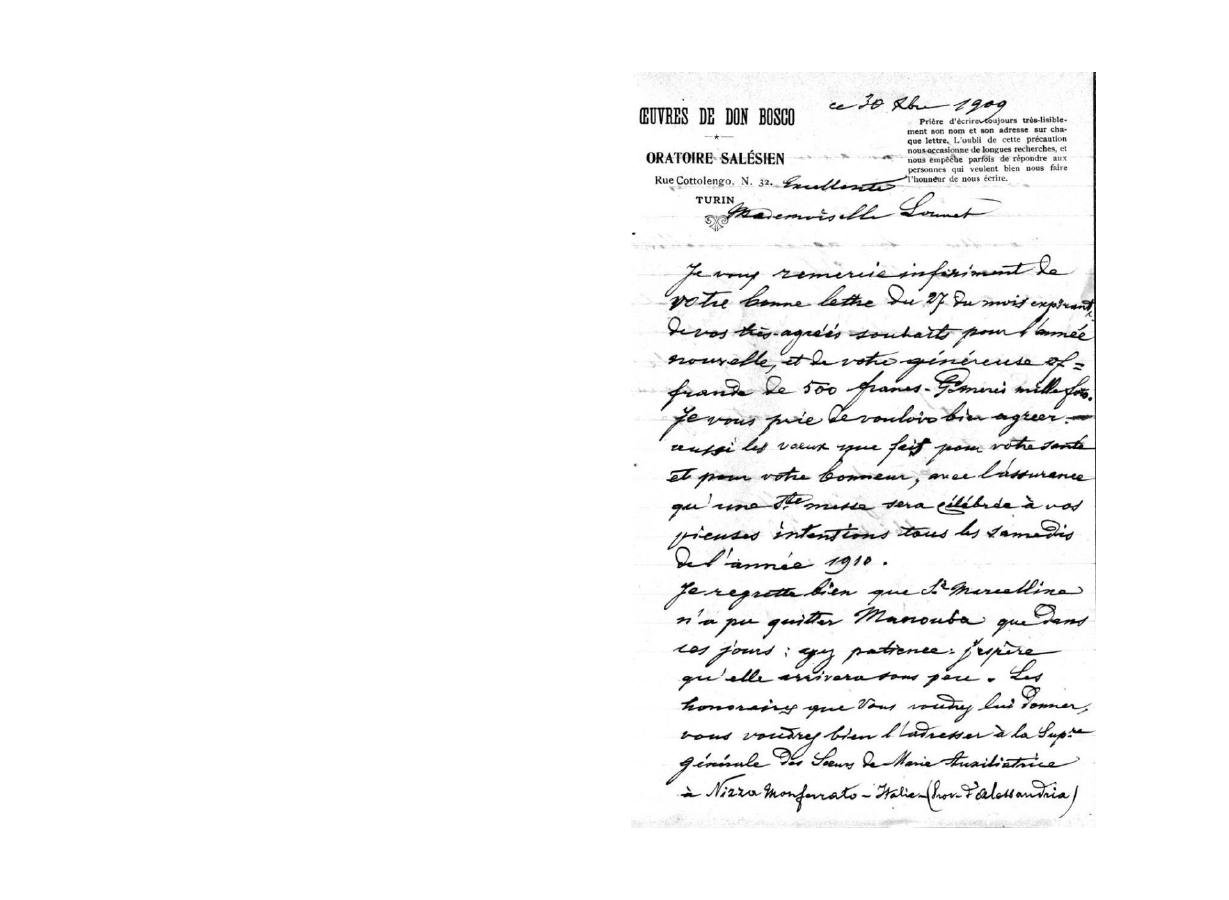 ce 30 Xbre 1909
ŒUVRES DE DON BOSCO
ORATOIRE SALÉSIEN
Rue Cottolengo, N. 32.
TURIN
Prière d'écrire toujours très-lisible-
ment son nom et son adresse sur cha-
que lettre. L'oubli de cette précaution
nous occasionne de longues recherches, et
nous empêche parfois de répondre aux
personnes qui veulent bien nous faire
l'honneur de nous écrire.
Excellente
Mademoiselle Louvet
Je vous remercie infiniment de
votre bonne lettre du 27 du mois expirant,
de vos très-agréés souhaits pour l'année
nouvelle, et de votre généreuse of=
frande de 500 francs - Gd merci mille fois.
Je vous prie de vouloir bien agréer -
aussi les vœux que fais pour votre santé
et pour votre bonneur, avec l'assurance
qu'une Ste messe sera célébrée à vos
pieuses intentions tous les samedis
de l'année 1910.
Je regrette bien que Sr Marcelline
n'a pu quitter Manouba que dans
ces jours : ayez patience : j'espère
qu'elle arrivera sous peu. Les
honoraires que vous voudrez lui donner,
vous voudrez bien l'adresser à la Supre
générale des Sœurs de Marie Auxiliatrice
à Nizza Monferrato - Italie - (Prov. d'Alessandria)